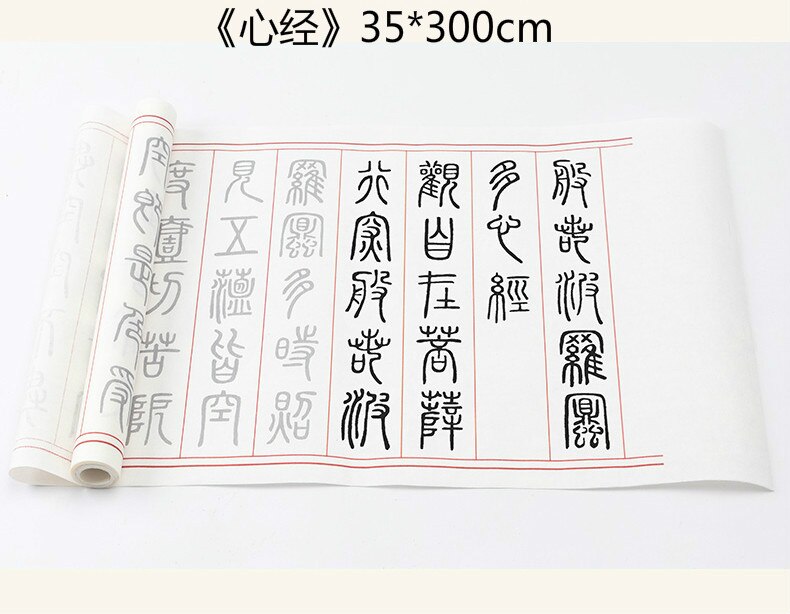 《心经》35*300cm
般若波羅蜜
多心經
觀自在菩薩
行深般若波
羅蜜多時照
見五蘊皆空
度壹切苦厄
空即是色受